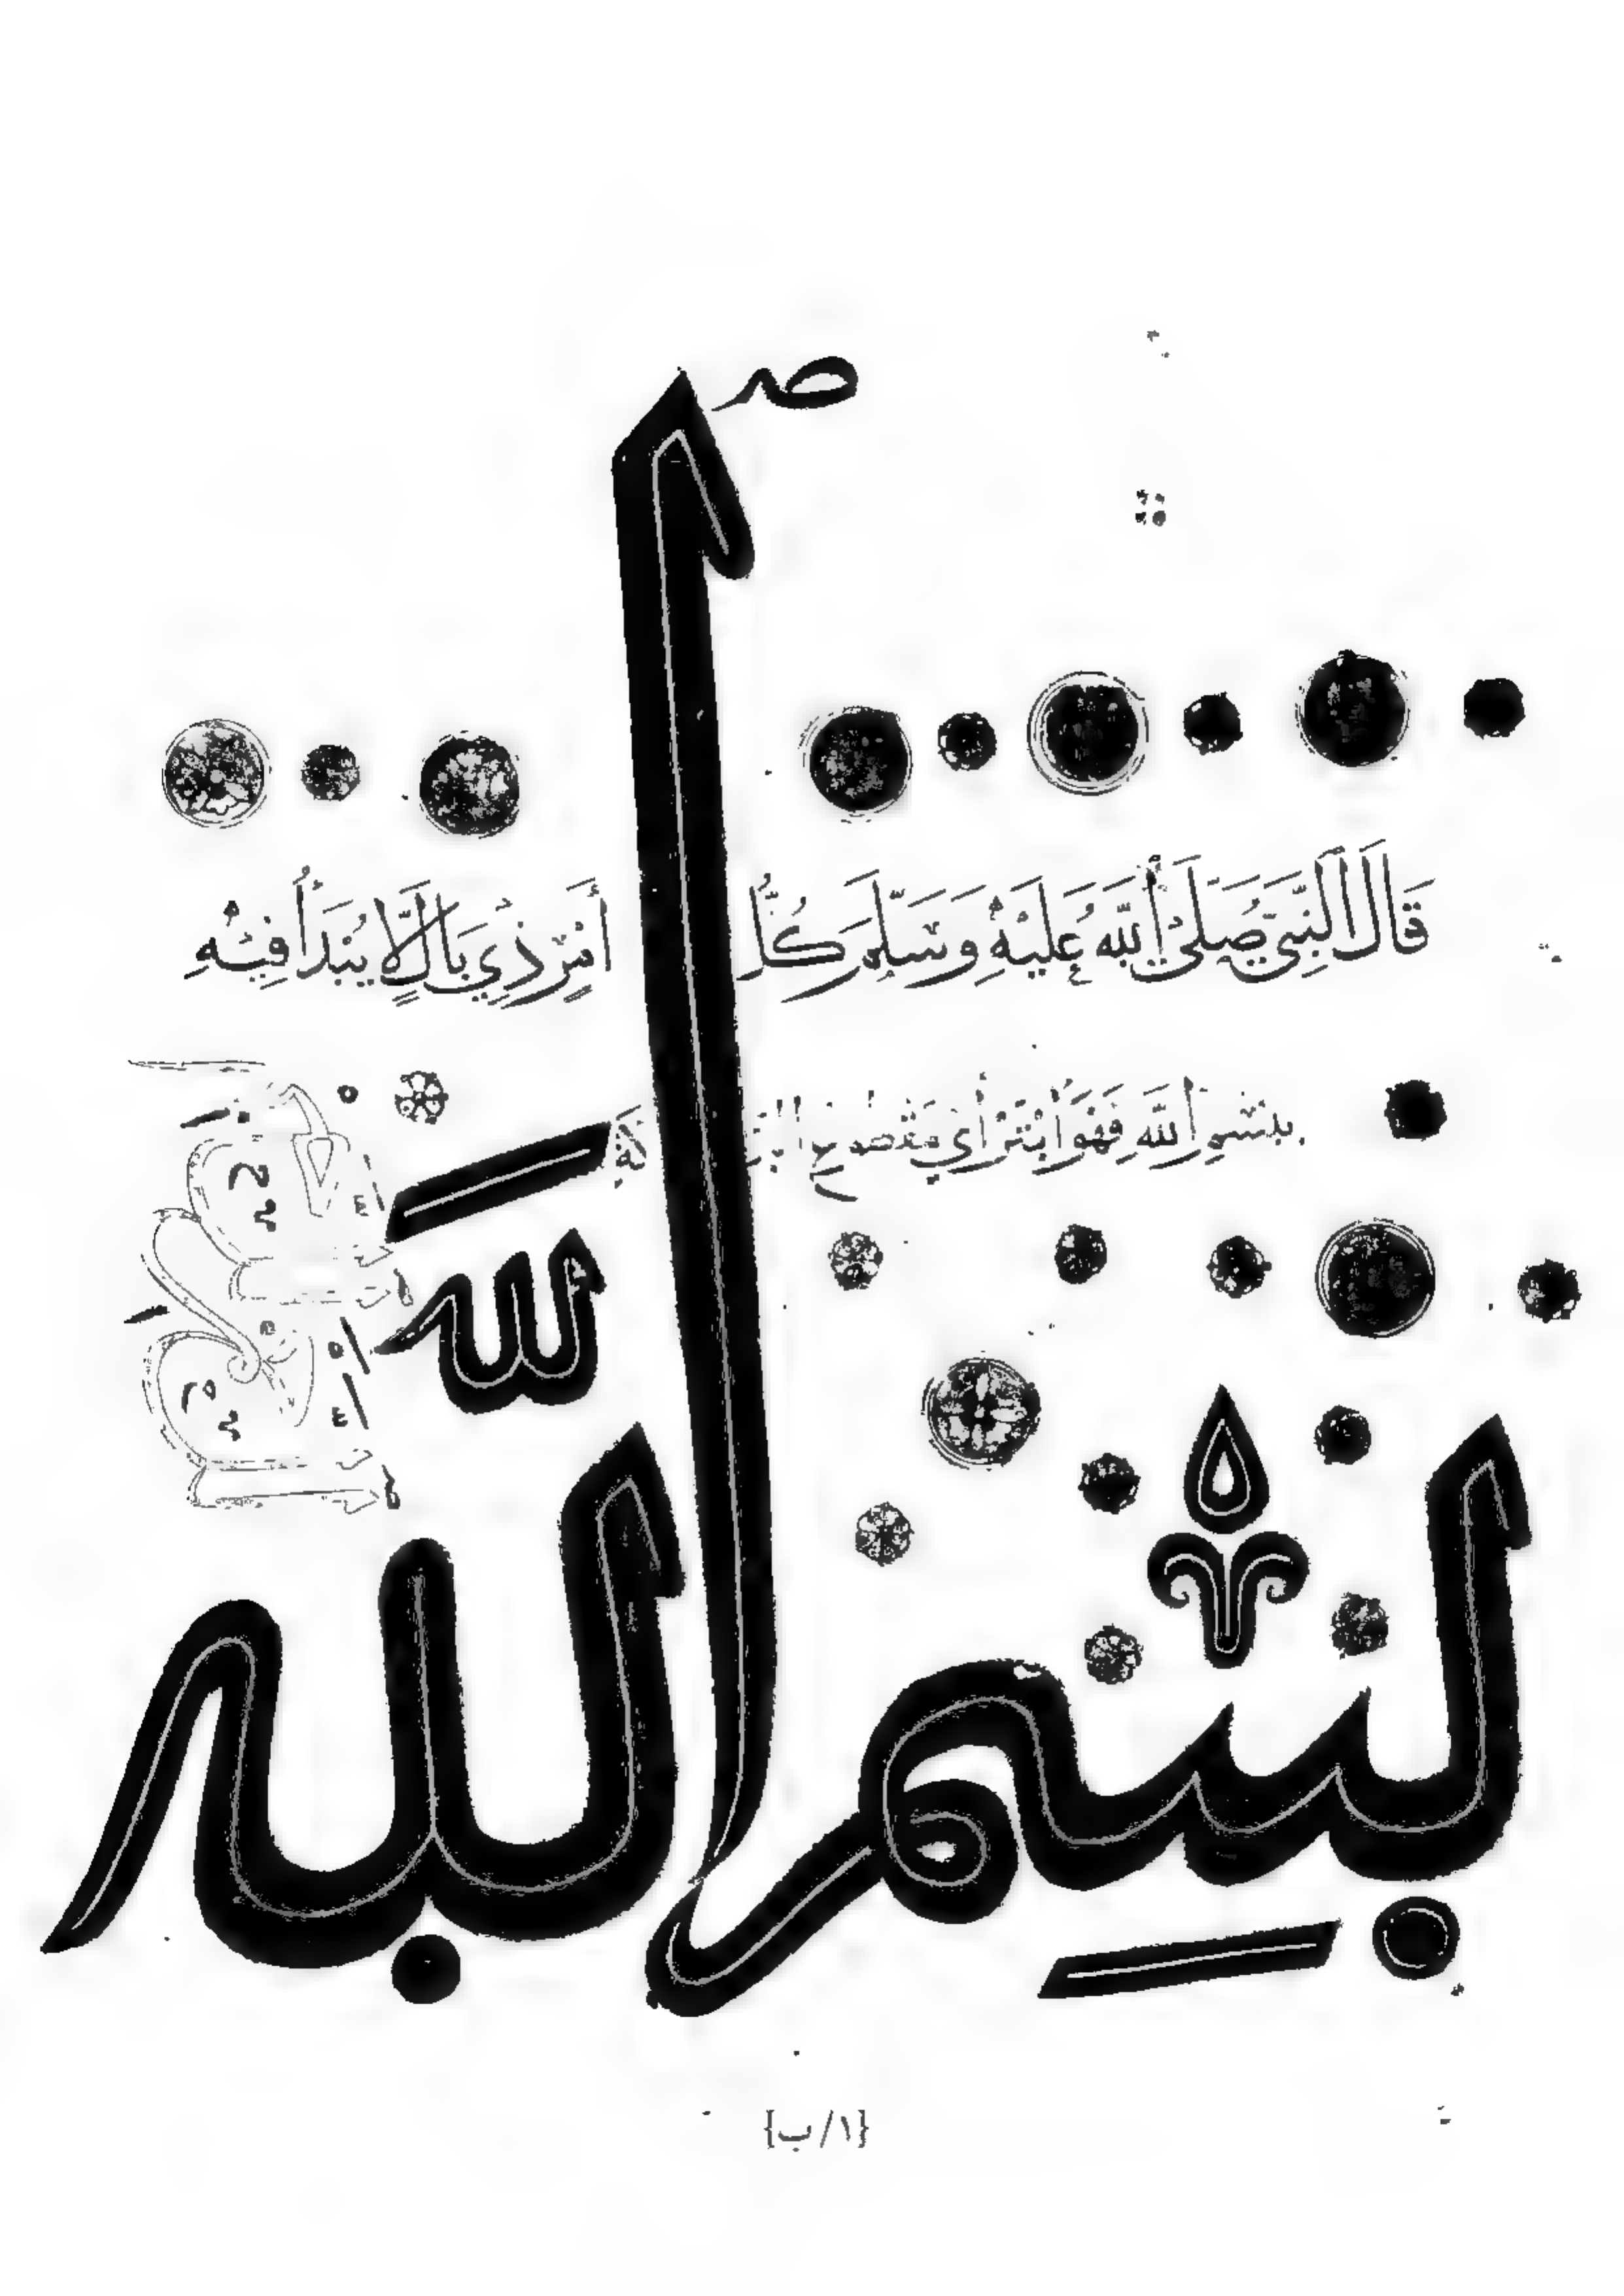 صـ
قَالَ النَّبِيُّ صَلَّى اللَّهُ عَلَيْهِ وَسَلَّمَ كُلُّ أَمْرٍ ذِي بَالٍ لَا يُبْدَأُ فِيهِ
بِبِسْمِ اللَّهِ فَهُوَ أَبْتَرُ أَيْ مَقْطُوعُ الْبَرَكَةِ
لله
بِسْمِ الله
{١/ب}